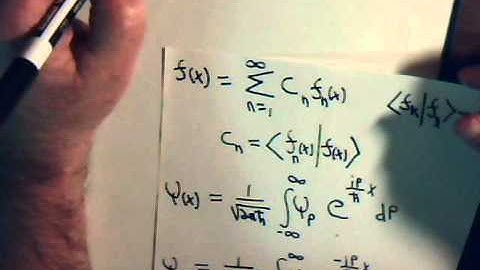 f(x) = ∞∑n=1 Cₙ fₙ(x) ⟨fₖ|f
Cₙ = ⟨fₙ(x)|f(x)⟩
Ψ(x) = 1/√2πħ ∫-∞^∞ Ψₚ e^(ip/ħ x) dp
Ψ = 1 ∫ ∞ -ip x